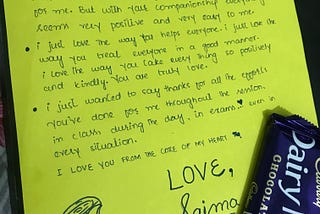 for me. But with your companionship everything
seems very positive and very easy to me.
• i just love the way you helps everyone. i just love the
way you treat everyone in a good manner.
i love the way you take every thing so positively
and kindly. You are truly love.
• i just wanted to say thanks for all the efforts
you've done for me throughout the session.
in class during the day, in exams even in
every situation.
I LOVE YOU FROM THE CORE OF MY HEART
LOVE,
Saima
Cadbury
Dairy
CHOCOLA